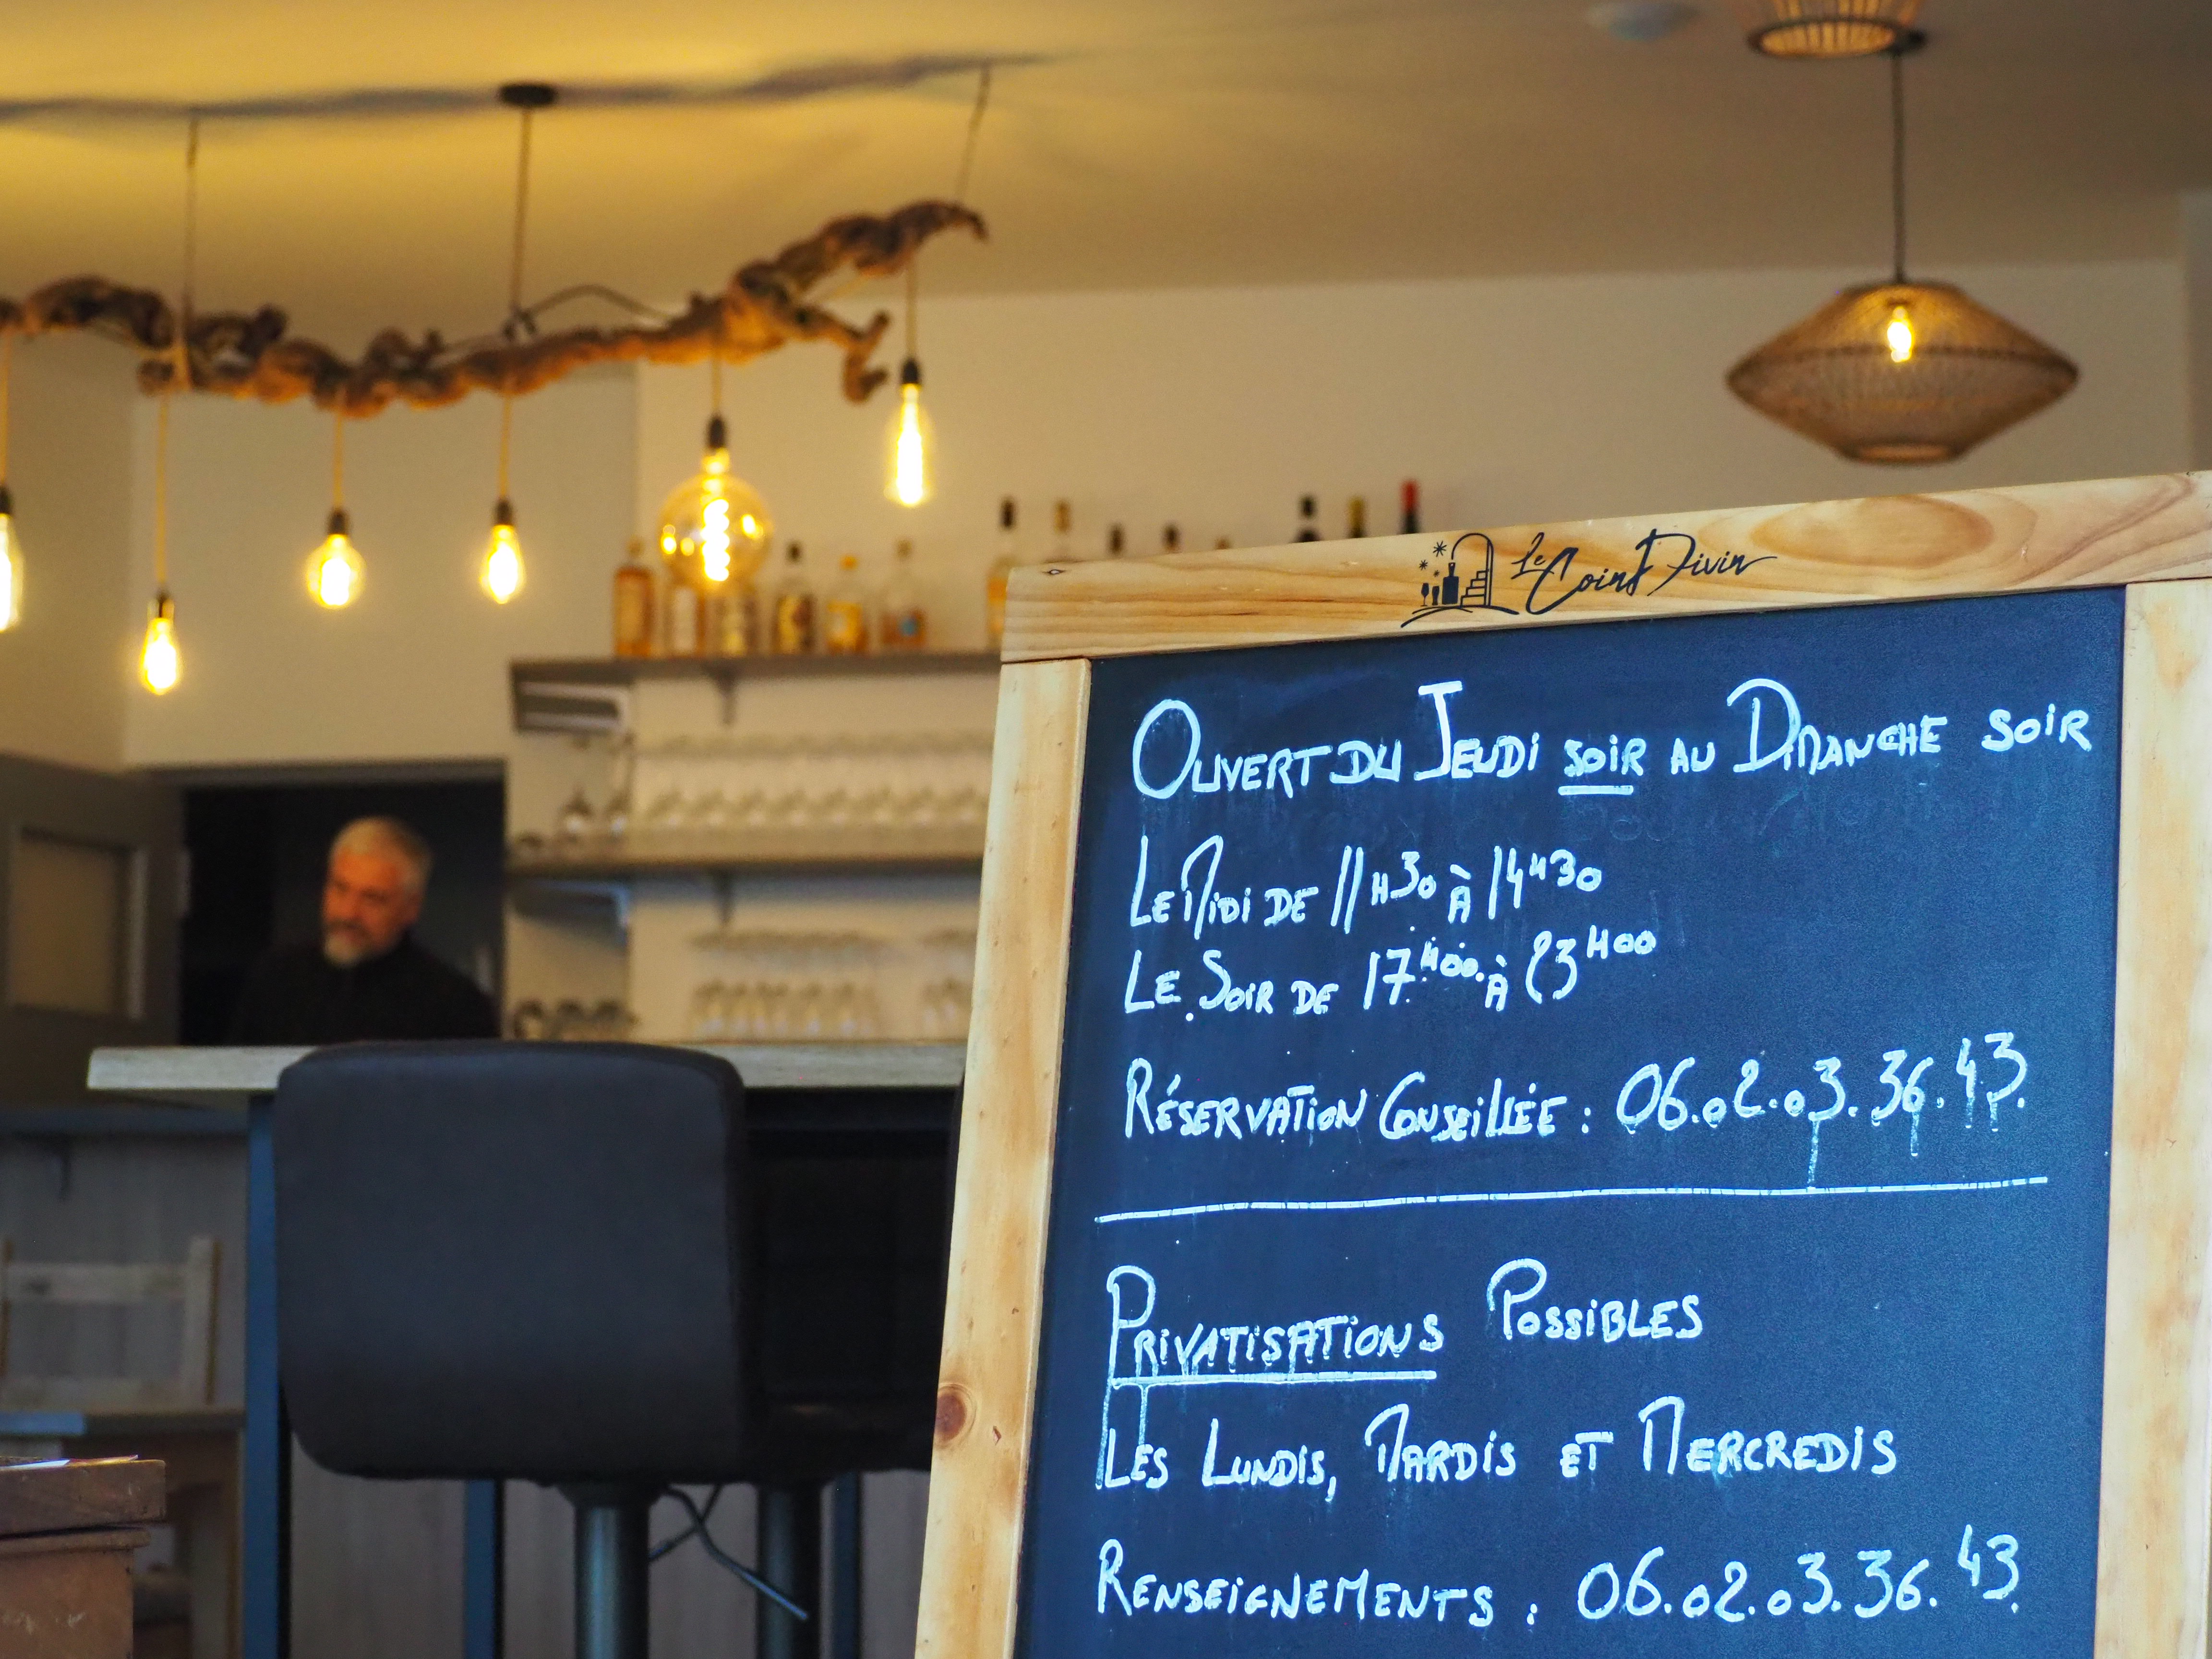 Le Coin Divin
OUVERT DU JEUDI SOIR AU DIMANCHE SOIR
LE MIDI DE 11H30 À 14H30
LE SOIR DE 17H00 À 23H00
RÉSERVATION CONSEILLÉE : 06.02.03.36.43.
PRIVATISATIONS POSSIBLES
LES LUNDIS, MARDIS ET MERCREDIS
RENSEIGNEMENTS : 06.02.03.36.43.